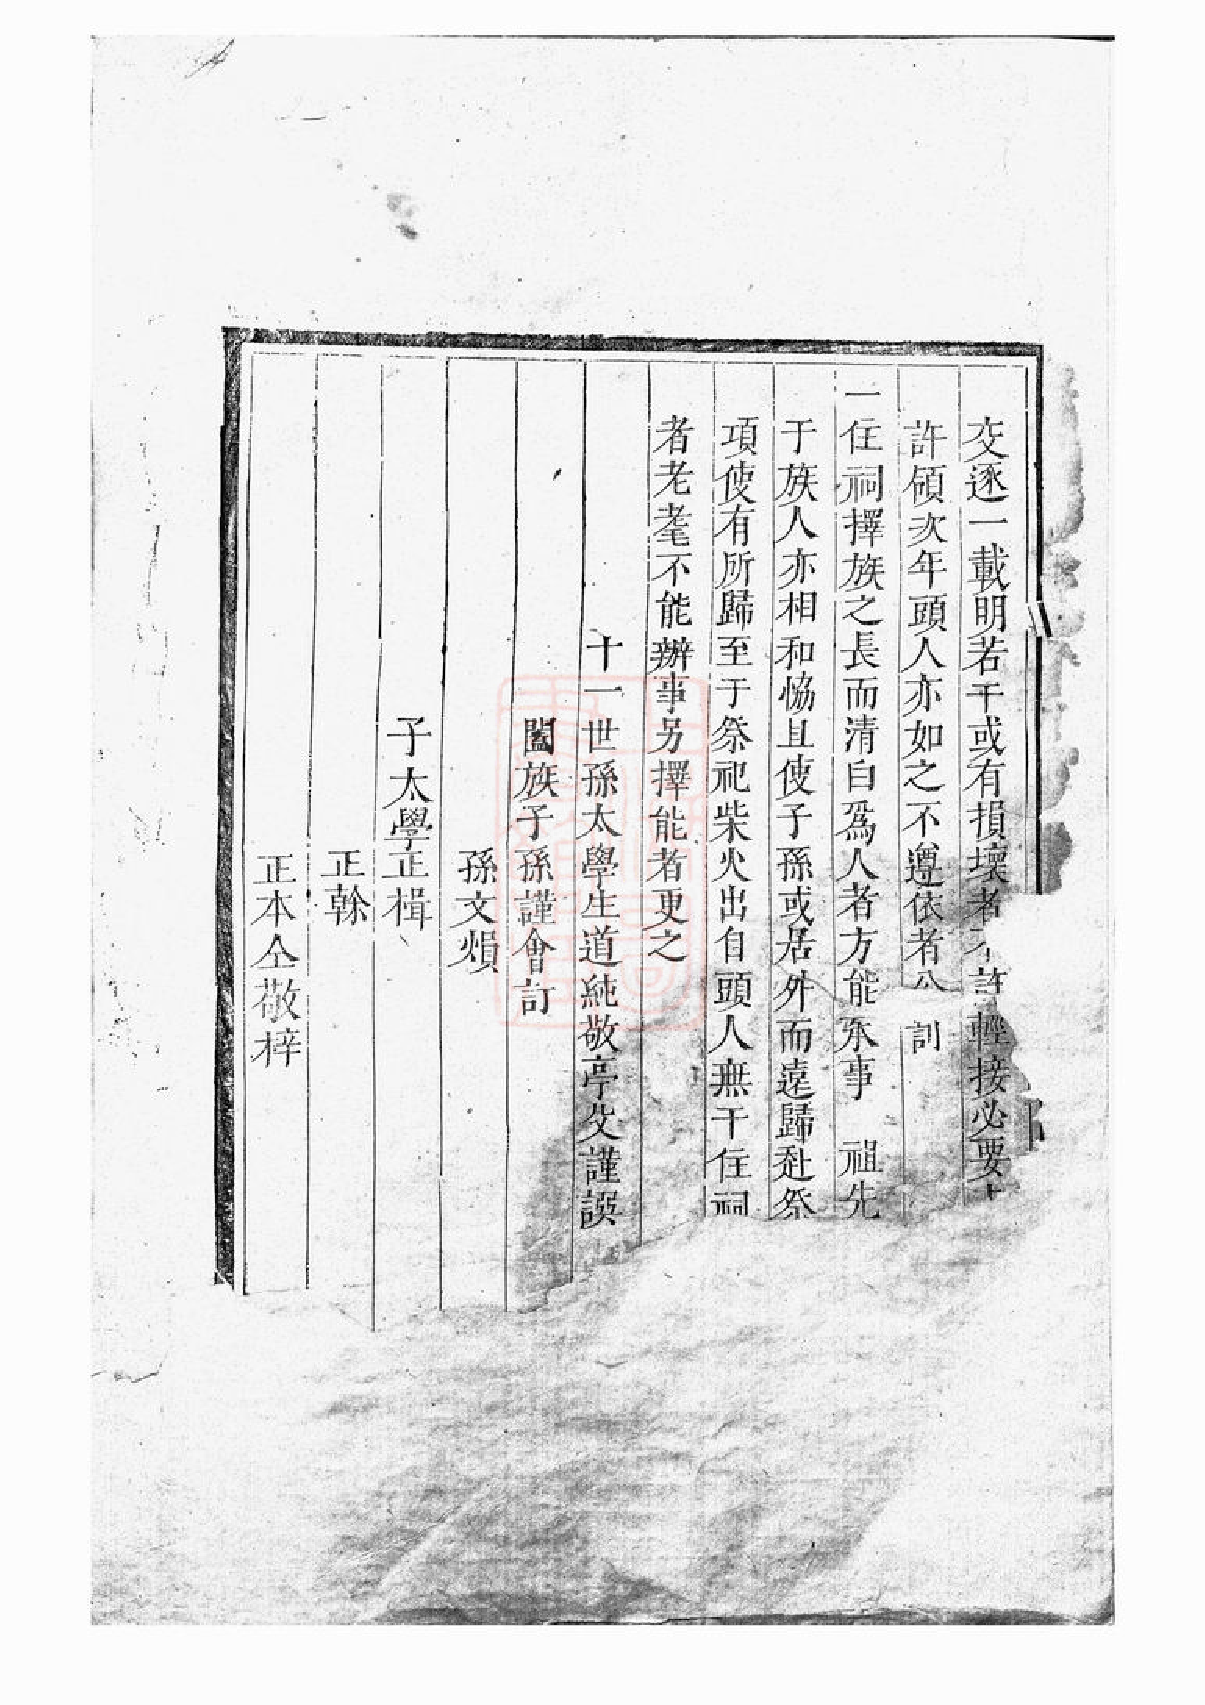 交逐一載明若干或有損壞者不許輕接必要
許領次年頭人亦如之不遵依者公 訓
一住祠擇族之長而清白爲人者方能承事 祖先
于族人亦相和恊且使子孫或居外而遠歸赴祭
項使有所歸至于祭祀柴火出自頭人無干住祠
者老耄不能辦事另擇能者更之
十一世孫太學生道純敬亭父謹誤
闔族子孫謹會訂
孫文熉
子太學正楫
正榦
正本仝敬梓